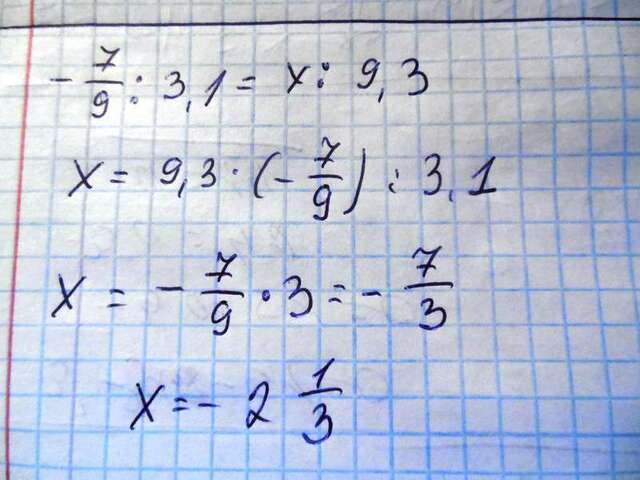 - 7/9 : 3,1 = x : 9,3
x = 9,3 · (- 7/9) : 3,1
x = - 7/9 · 3 = - 7/3
x = - 2 1/3